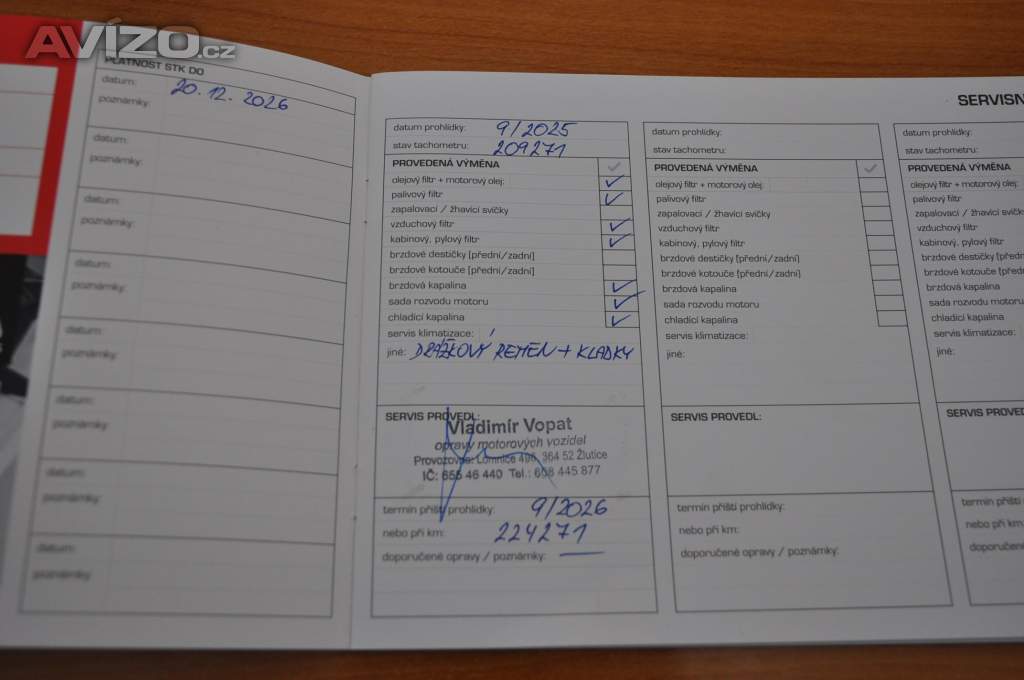 AVÍZO.cz
PLATNOST STK DO
datum: 20. 12. 2026
poznámky:
datum:
poznámky:
datum:
poznámky:
datum:
poznámky:
datum:
poznámky:
datum:
poznámky:
datum:
poznámky:
datum:
poznámky:
SERVISN
datum prohlídky: 9/2025
stav tachometru: 209271
PROVEDENÁ VÝMĚNA ✓
olejový filtr + motorový olej: ✓
palivový filtr ✓
zapalovací / žhavicí svíčky
vzduchový filtr ✓
kabinový, pylový filtr ✓
brzdové destičky [přední/zadní]
brzdové kotouče [přední/zadní]
brzdová kapalina ✓
sada rozvodu motoru ✓
chladicí kapalina ✓
servis klimatizace:
jiné: DRÁŽKOVÝ ŘEMEN + KLADKY
SERVIS PROVEDL:
Vladimír Vopat
opravy motorových vozidel
Provozovna: Lomnice 496, 364 52 Žlutice
IČ: 655 46 440 Tel.: 608 445 877
termín příští prohlídky: 9/2026
nebo při km: 224271
doporučené opravy / poznámky: —
datum prohlídky:
stav tachometru:
PROVEDENÁ VÝMĚNA ✓
olejový filtr + motorový olej:
palivový filtr
zapalovací / žhavicí svíčky
vzduchový filtr
kabinový, pylový filtr
brzdové destičky [přední/zadní]
brzdové kotouče [přední/zadní]
brzdová kapalina
sada rozvodu motoru
chladicí kapalina
servis klimatizace:
jiné:
SERVIS PROVEDL:
termín příští prohlídky:
nebo při km:
doporučené opravy / poznámky:
datum prohlídky:
stav tachometru:
PROVEDENÁ VÝMĚNA
olejový filtr + motorový
palivový filtr
zapalovací / žhavicí
vzduchový filtr
kabinový, pylový filtr
brzdové destičky [před
brzdové kotouče [před
brzdová kapalina
sada rozvodu motoru
chladicí kapalina
servis klimatizace:
jiné:
SERVIS PROVED
termín příští
nebo při km:
doporučené